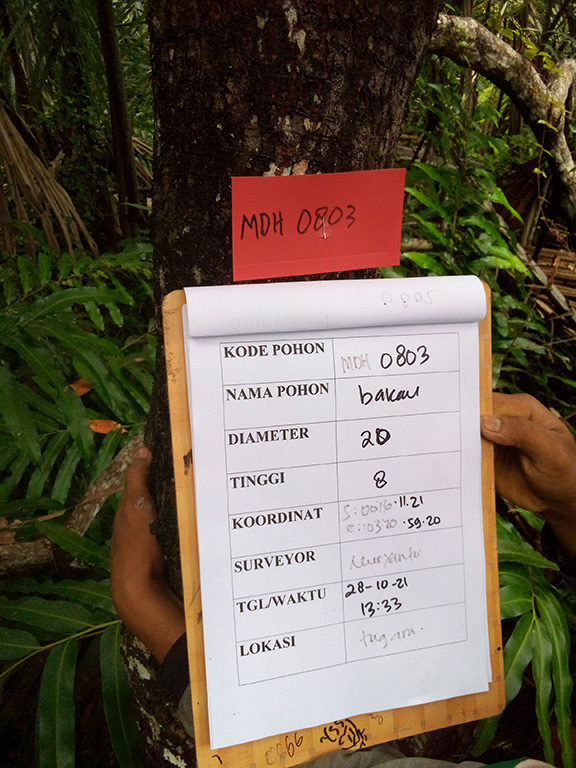 MDH 0803
0805
KODE POHON MDH 0803
NAMA POHON bakau
DIAMETER 20
TINGGI 8
KOORDINAT S: 0016.11.21
e: 10320.59.20
SURVEYOR
TGL/WAKTU 28-10-21
13:33
LOKASI